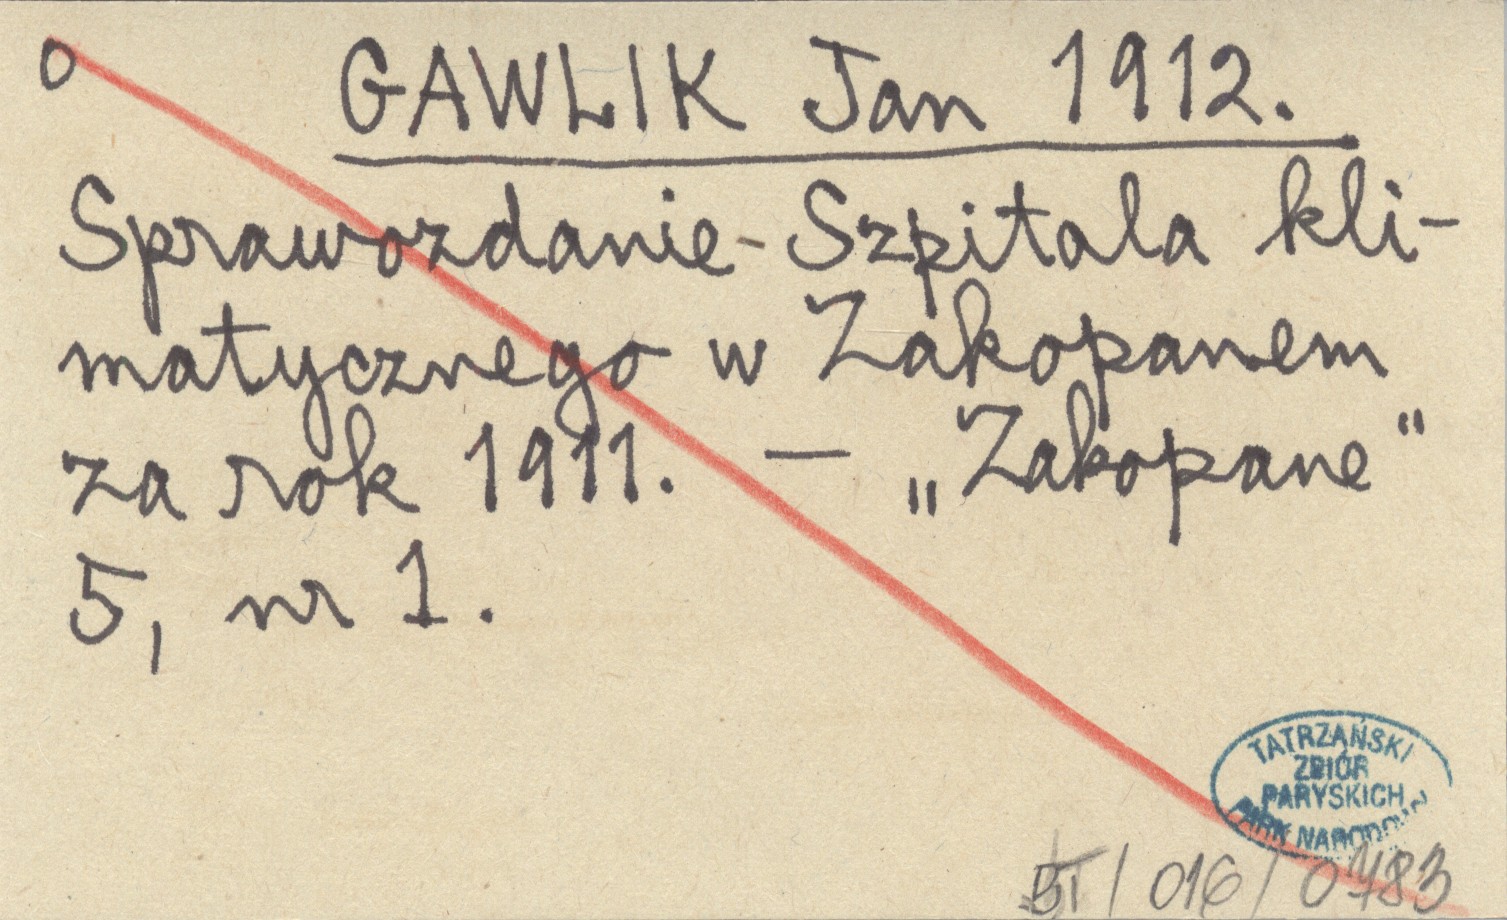 o GAWLIK Jan 1912.
Sprawozdanie Szpitala kli-
matycznego w Zakopanem
za rok 1911. — „Zakopane"
5, nr 1.
TATRZAŃSKI
ZBIÓR
PARYSKICH
PARK NARODOWY
/ 016 / 0783